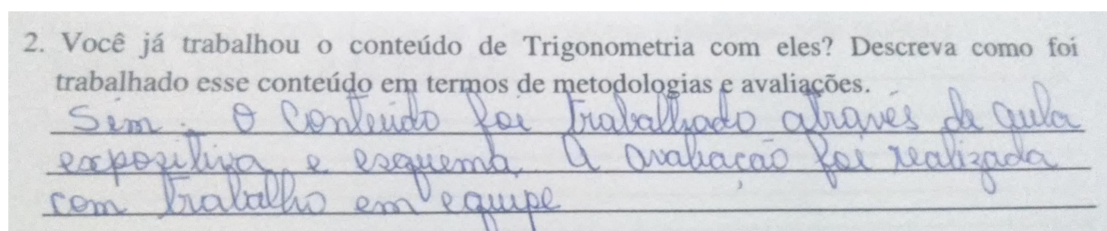 2. Você já trabalhou o conteúdo de Trigonometria com eles? Descreva como foi
trabalhado esse conteúdo em termos de metodologias e avaliações.
Sim. O Conteúdo foi trabalhado através da aula
expositiva e esquema. A avaliação foi realizada
com trabalho em equipe